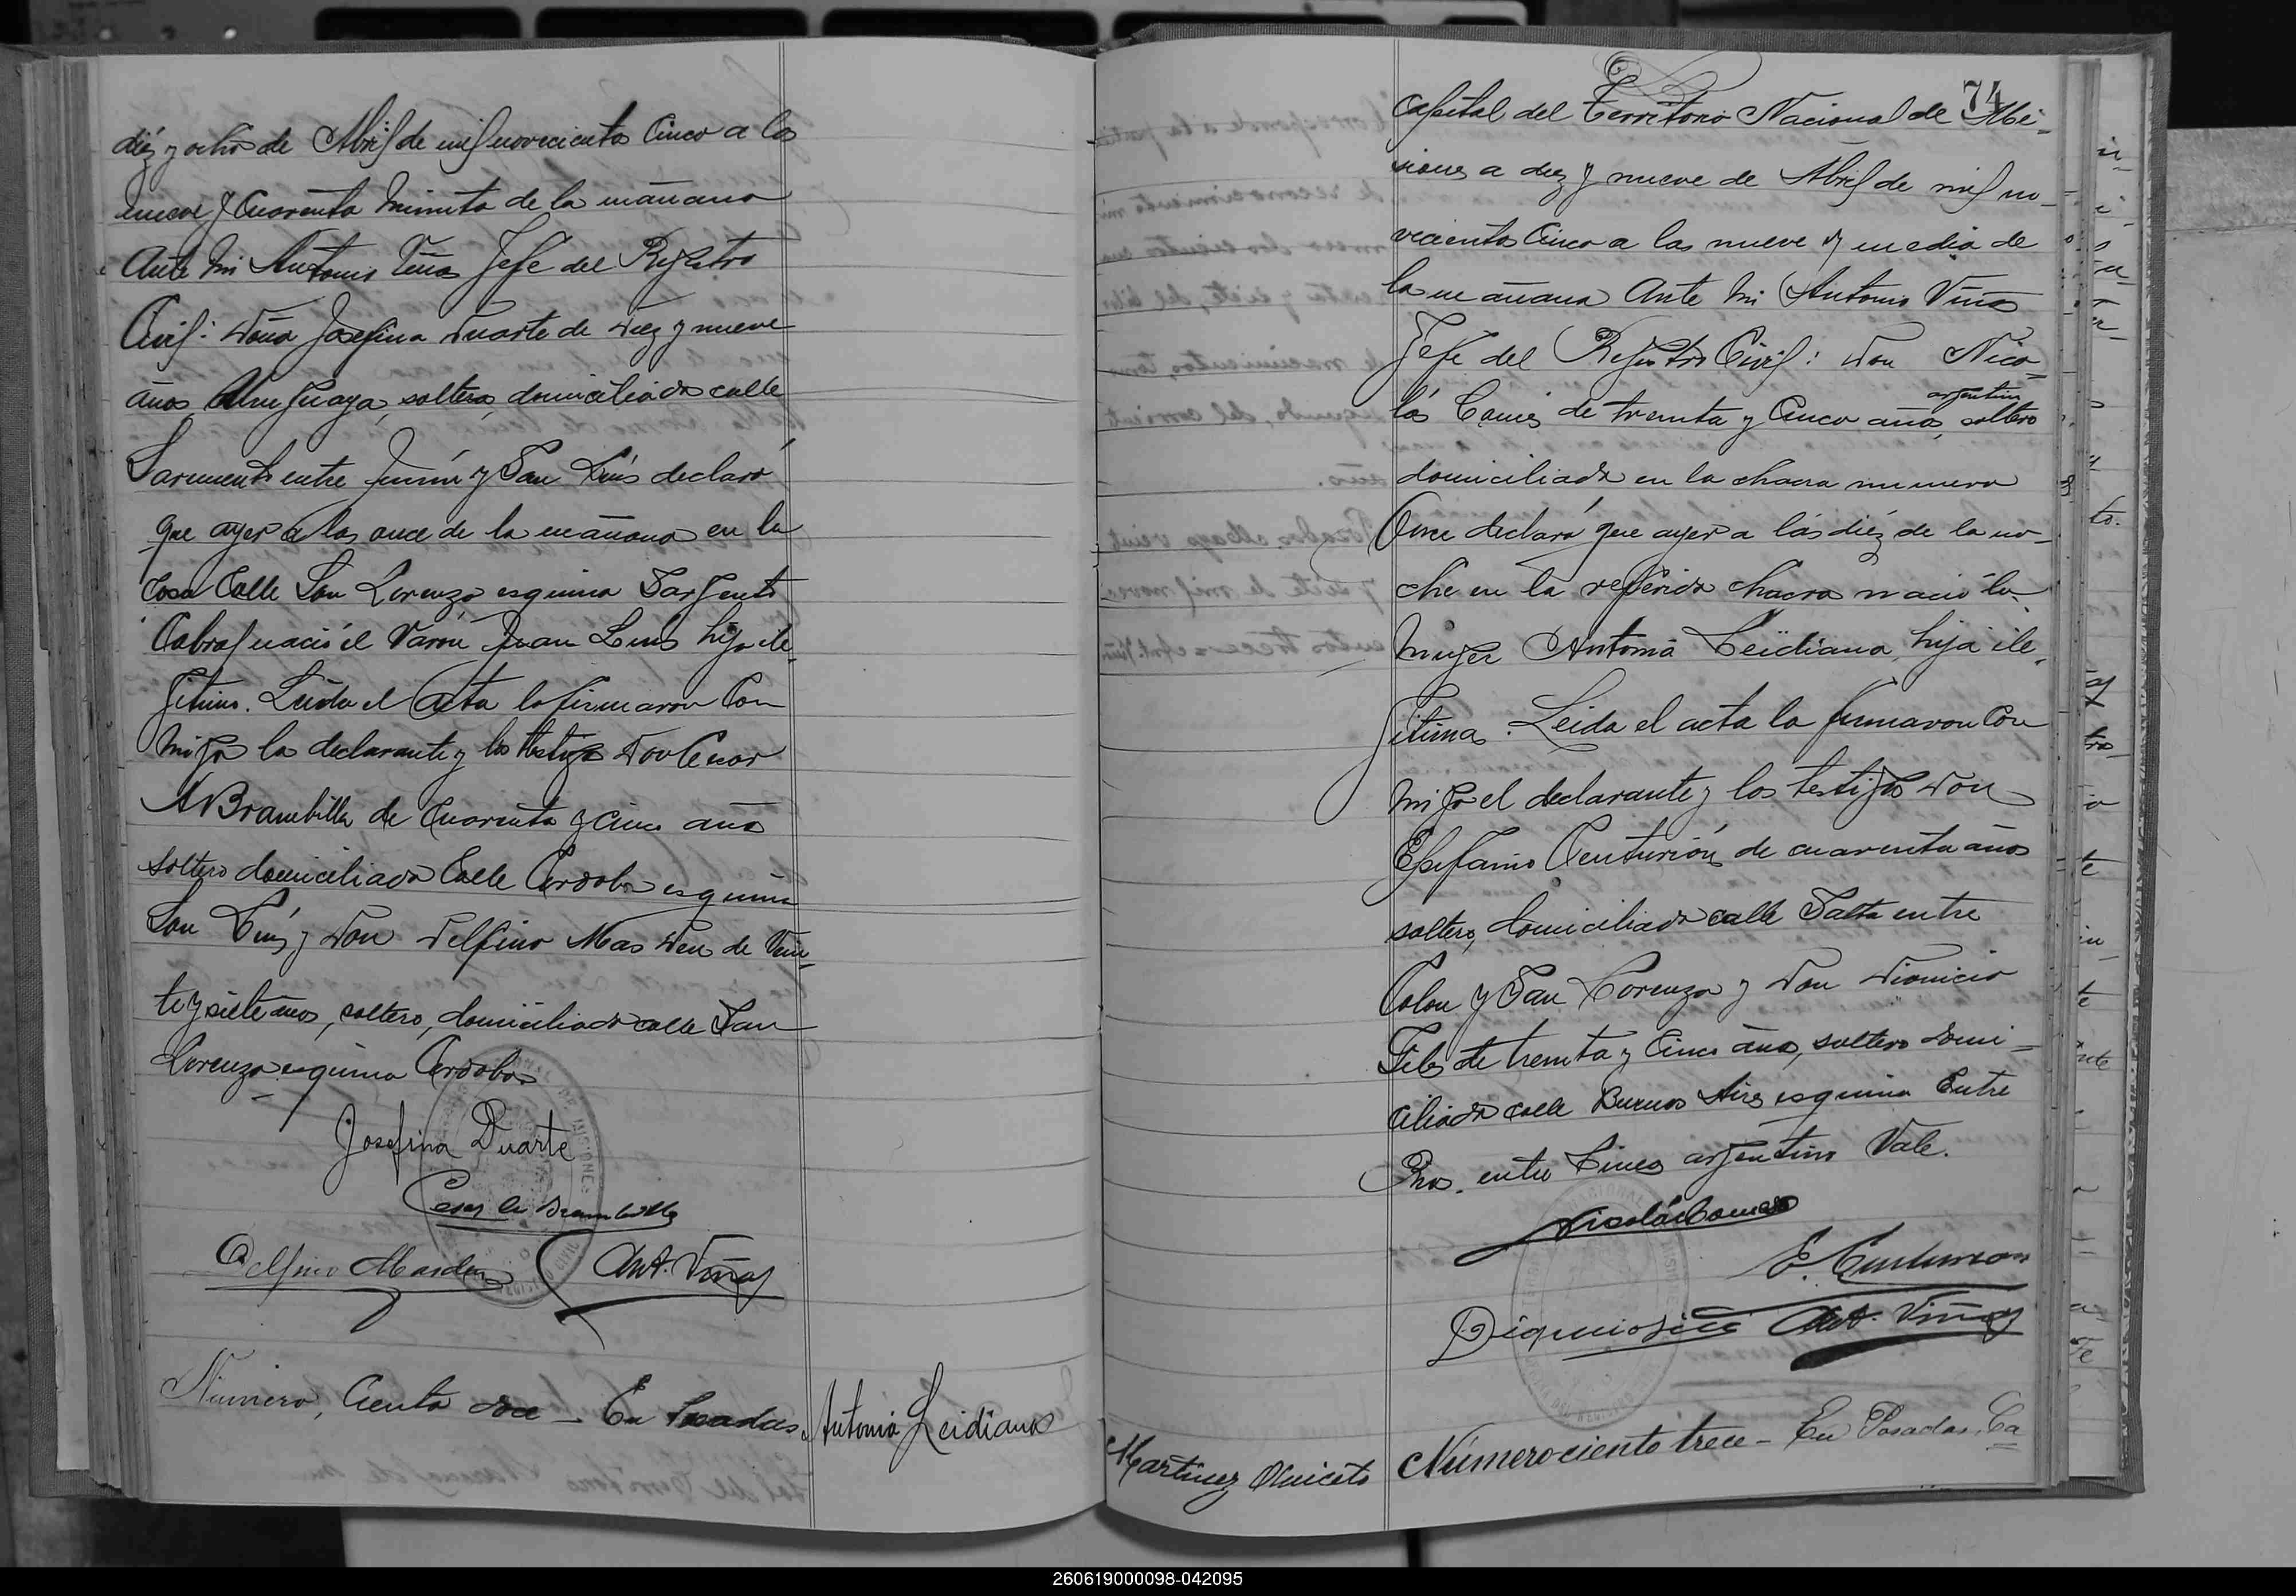 diéz y ocho de Abril de mil novecientos Cinco a las
nueve y Cuarenta minutos de la mañana
Ante mi Antonio Viñas Jefe del Registro
Civil: Doña Josefina Duarte de Diez y nueve
años, Uruguaya, soltera, domiciliada calle
Sarmiento entre Junín y San Luis declaró
que ayer a las once de la mañana en la
Casa Calle San Lorenzo esquina Sargento
Cabral nació el Varón Juan Luis hijo ile-
gitimo. Leida el Acta la firmaron Con
migo la declarante y los testigos Don Cesar
A Brambilla de Cuarenta y cinco años
soltero domiciliado Calle Cordoba esquina
San Luis y Don Delfino Mas Den de Vein-
te y siete años, soltero, domiciliado calle San
Lorenzo esquina Cordoba
Josefina Duarte
Cesar A Brambilla
Delfino Masden Ant. Viñas
Número, Ciento doce - En Posadas,
Antonia Leidiana
74
Capital del Territorio Nacional de Mi-
siones a diez y nueve de Abril de mil no-
vecientos Cinco a las nueve y media de
la mañana Ante mi Antonio Viñas
Jefe del Registro Civil: Don Nico-
argentino
lás de treinta y Cinco años, soltero
domiciliado en la chacra numero
Once declaró que ayer a las diéz de la no-
che en la referida chacra nació la
Mujer Antonia Leidiana, hija ile-
gitima. Leida el acta la firmaron Con
migo el declarante y los testigos Don
Epifanio Centurión de cuarenta años
soltero, domiciliado calle Salta entre
Colon y San Lorenzo y Don Dionicio
de treinta y Cinco años, soltero domi-
ciliado calle Buenos Aires esquina Entre
Rios. entre Lineas argentino Vale.
Nicolás
E. Centurion
Ant. Viñas
Martinez Aniceto
Número ciento trece - En Posadas, Ca
260619000098-042095